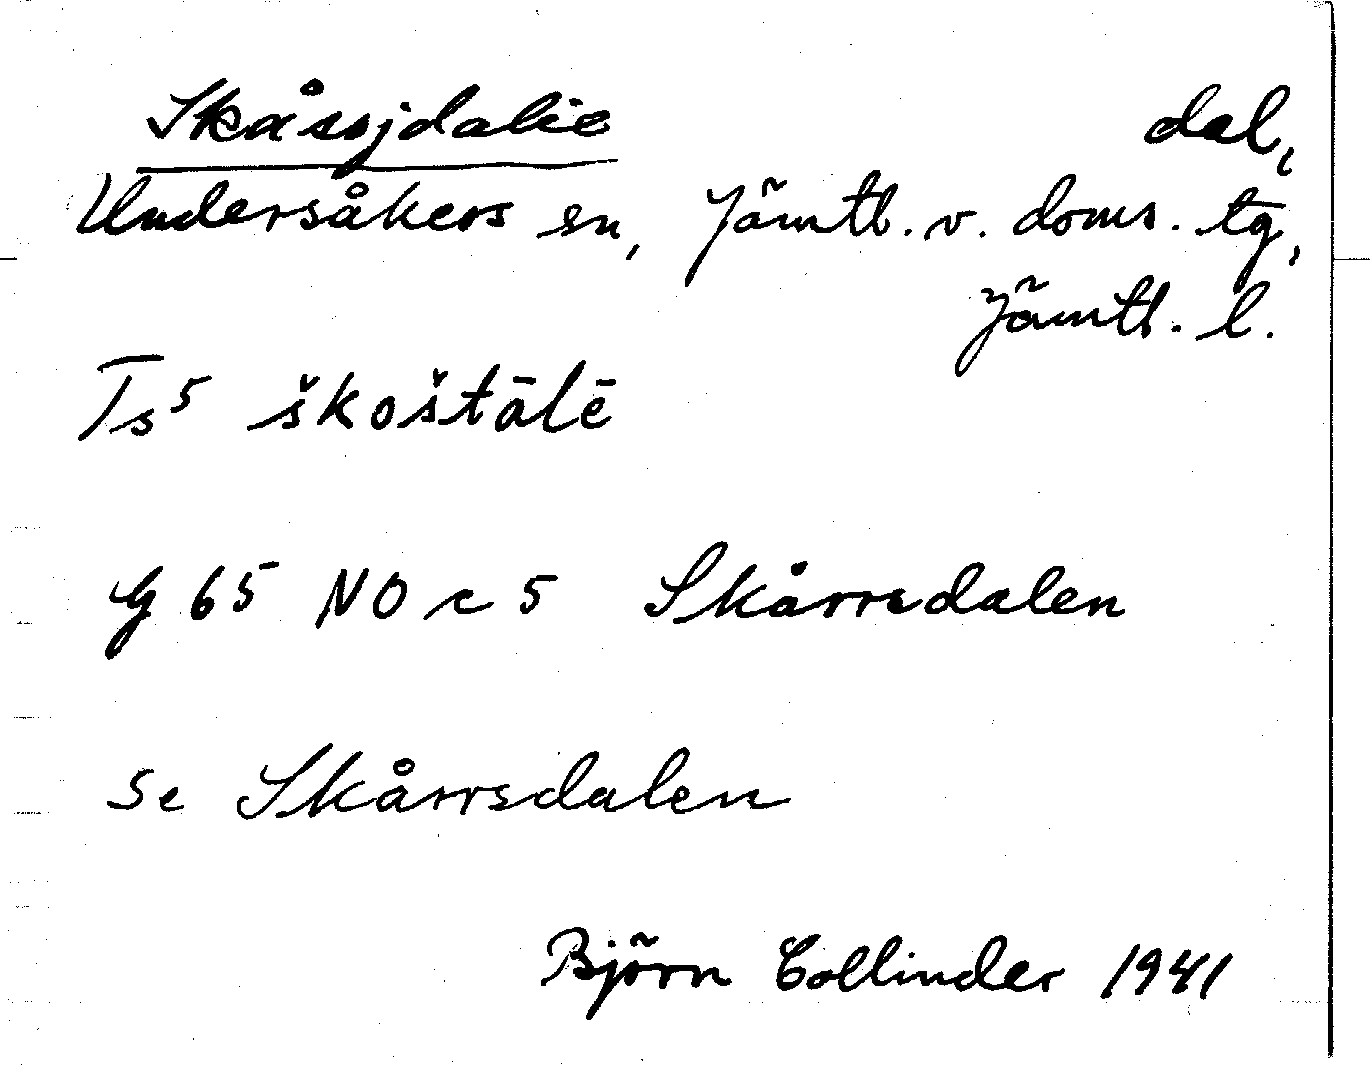 Skåssjdalie dal,
Undersåkers sn, Jämtl. v. doms. tg,
Jämtl. l.
Ts⁵ škoštālē
G 65 NO c 5 Skårrsdalen
se Skårrsdalen
Björn Collinder 1941